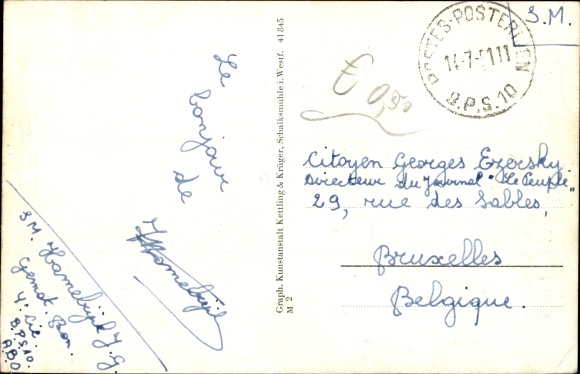 S.M.
POSTES-POSTERIJEN
14-7-51 11
B.P.S.10
€ 0,50
Le
bonjour
de
Graph. Kunstanstalt Kettling & Krüger, Schalksmühle i. Westf. 41845
M 2
Citoyen Georges Ezersky
Directeur du Journal "Le Peuple"
29, rue des Sables,
Bruxelles
Belgique.
SM. Hamelrijck J.G.
4. Cie
B.P.S 10.
A.B.O